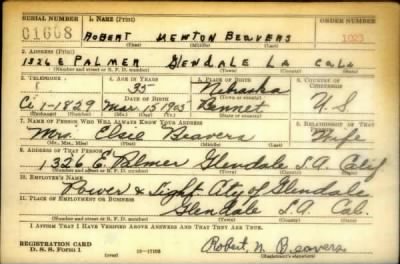 SERIAL NUMBER 1. NAME (Print) ORDER NUMBER
01608 ROBERT NEWTON BEAVERS
(First) (Middle) (Last)
2. ADDRESS (Print)
1326 E PALMER GLENDALE LA CAL
(Number and street or R. F. D. number) (Town) (County) (State)
3. TELEPHONE 4. AGE IN YEARS 5. PLACE OF BIRTH 6. COUNTRY OF CITIZENSHIP
35 Nebraska
DATE OF BIRTH (Town or county)
Ci 1-1829 Mar 25 1905 Bennet U.S
7. NAME OF PERSON WHO WILL ALWAYS KNOW YOUR ADDRESS 8. RELATIONSHIP OF THAT PERSON
Mrs. Elsie Beavers Wife
(Mr., Mrs., Miss) (First) (Middle) (Last)
9. ADDRESS OF THAT PERSON
1326 E. Palmer Glendale L.A. Calif
(Number and street or R. F. D. number) (Town) (County) (State)
10. EMPLOYER'S NAME
Power & Light City of Glendale
11. PLACE OF EMPLOYMENT OR BUSINESS
Glendale L.A. Cal.
(Number and street or R. F. D. number) (Town) (County) (State)
I AFFIRM THAT I HAVE VERIFIED ABOVE ANSWERS AND THAT THEY ARE TRUE.
REGISTRATION CARD
D. S. S. Form 1 (over) Robert N. Beavers
(Registrant's signature)